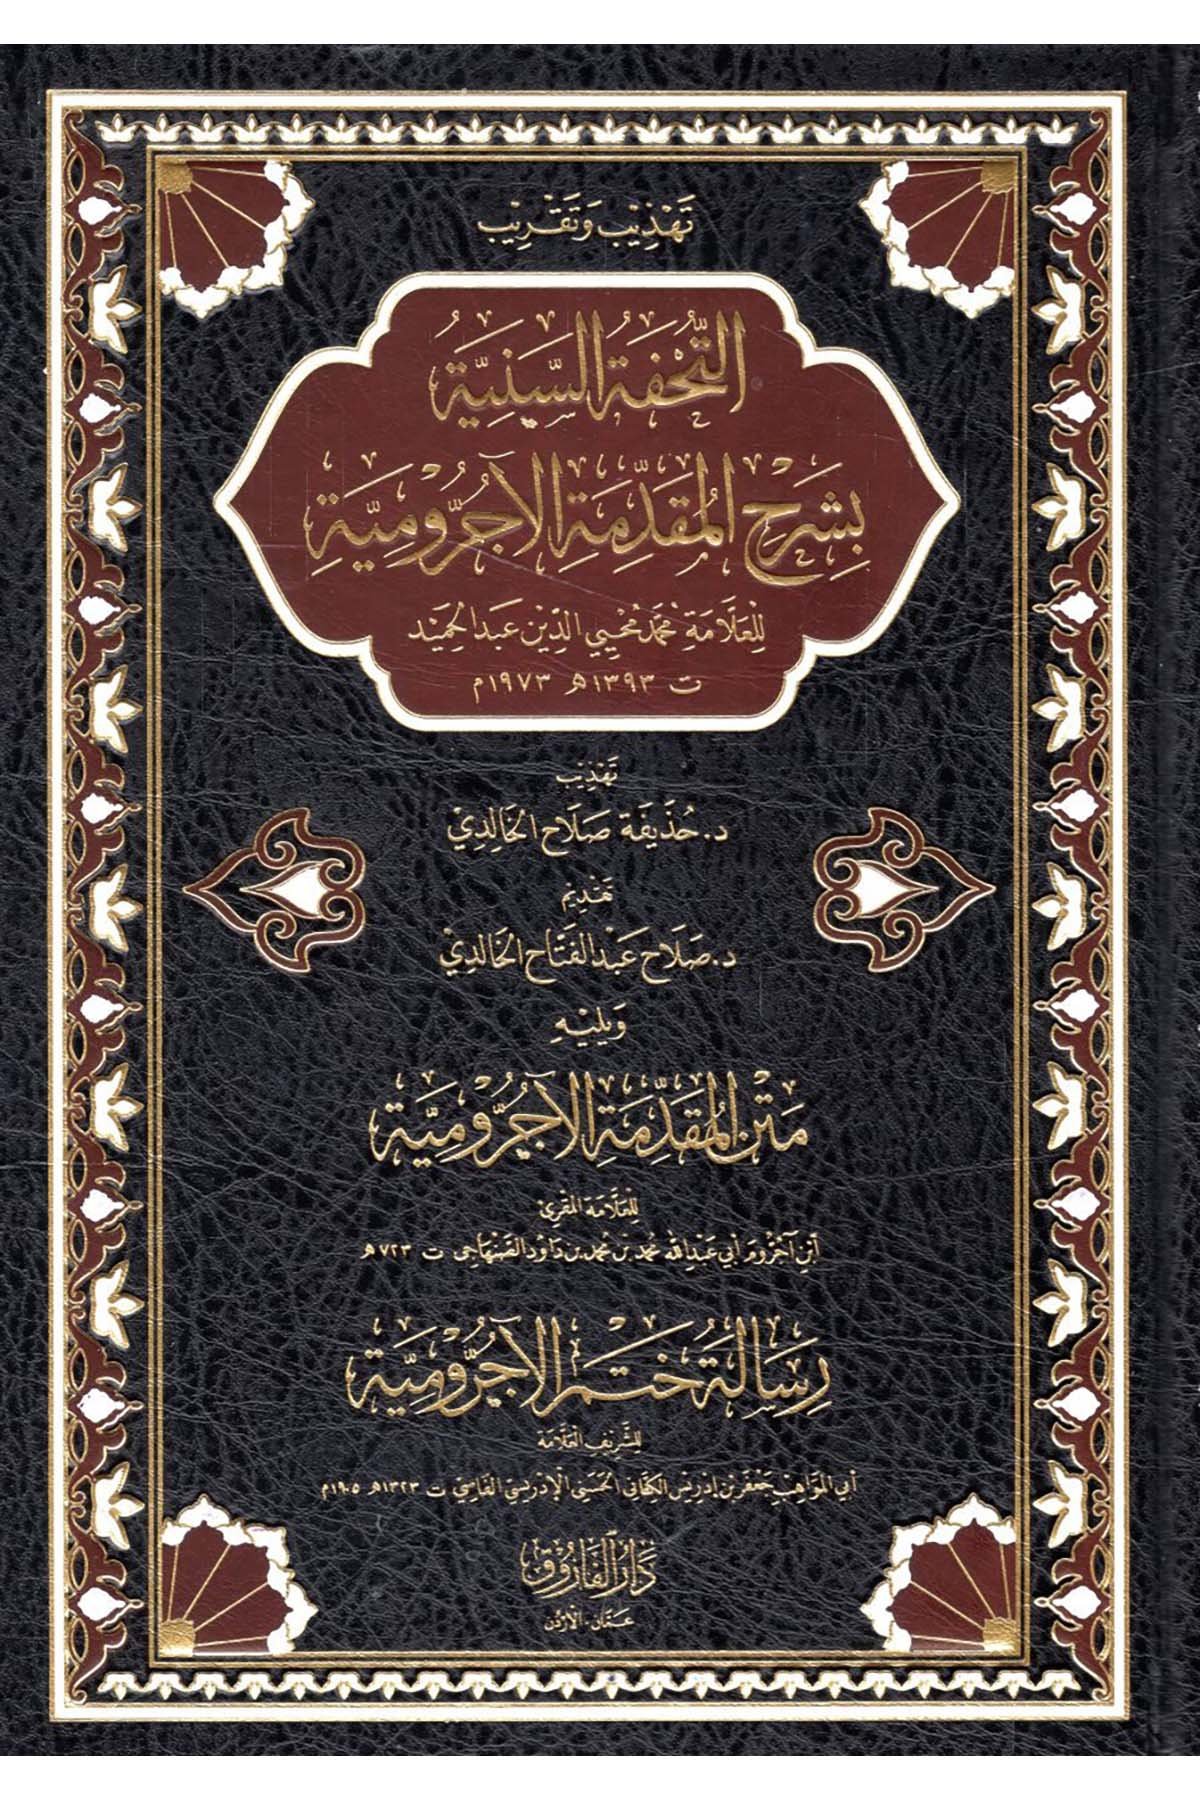 تَهْذِيْب وَتَقْرِيْب
التُّحْفَةُ السَّنِيَّةُ
بِشَرْحِ المُقَدِّمَةِ الآجُرُّومِيَّةِ
لِلْعَلَّامَةِ مُحَمَّد مُحْيِي الدِّيْن عَبْد الحَمِيْد
ت ١٣٩٣هـ ١٩٧٣م
تَهْذِيْب
د. حُذَيفَة صَلَاح الخَالِدِيْ
تَقْدِيم
د. صَلَاح عَبْد الفَتَّاح الخَالِدِيْ
وَيَلِيْهِ
مَتْنُ المُقَدِّمَةِ الآجُرُّومِيَّة
لِلْعَلَّامَة المُقْرِئ
ابْنِ آجُرُّوم أَبي عَبْدِ اللَّه مُحَمَّد بْن مُحَمَّد بن دَاوُد الصَّنْهَاجِي ت ٧٢٣هـ
رِسَالَةُ خَتْمِ الآجُرُّومِيَّة
لِلشَّرِيْفِ العَلَّامَة
أَبي المَوَاهِبِ جَعْفَر بْن إِدْرِيْس الكِتَّاني الحَسَنِي الإِدْرِيْسِي الفَاسِي ت ١٣٢٣هـ ١٩٠٥م
دَارُ الفَارُوْق
عَمَّان - الأُرْدُن